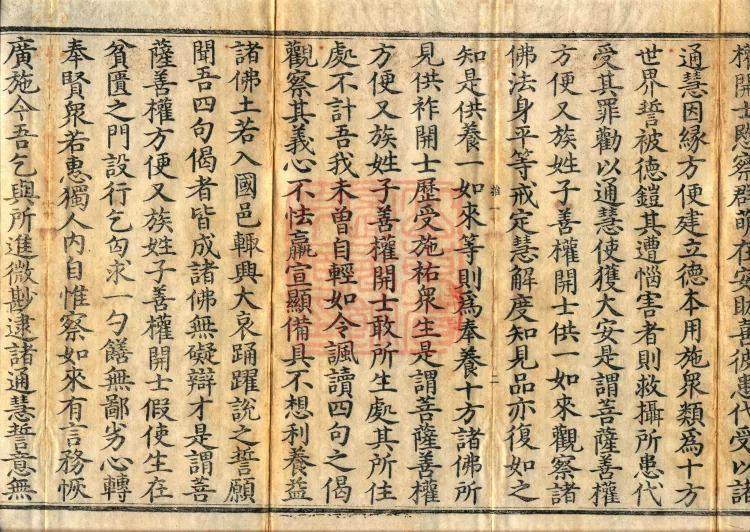 權開士愍察群萌在安耽善彼患代受以諸
通慧因緣方便建立德本用施衆類爲十方
世界誓被德鎧其遭惱害者則救攝所患代
受其罪勸以通慧使獲大安是謂菩薩善權
方便又族姓子善權開士供一如來觀察諸
佛法身平等戒定慧解度知見品亦復如之
推一 二
知是供養一如來等則爲奉養十方諸佛所
見供祚開士歷受施祐衆生是謂菩薩善權
方便又族姓子善權開士敢所生處其所住
處不計吾我未曾自輕如令諷讀四句之偈
觀察其義心不怯羸宣顯備具不想利養益
諸佛土若入國邑輙興大哀踊躍說之誓願
聞吾四句偈者皆成諸佛無礙辯才是謂菩
薩善權方便又族姓子善權開士假使生在
貧匱之門設行乞匃求一勺饍無鄙劣心轉
奉賢衆若惠獨人內自惟察如來有言務恢
廣施今吾乞與所進微尠逮諸通慧誓意無